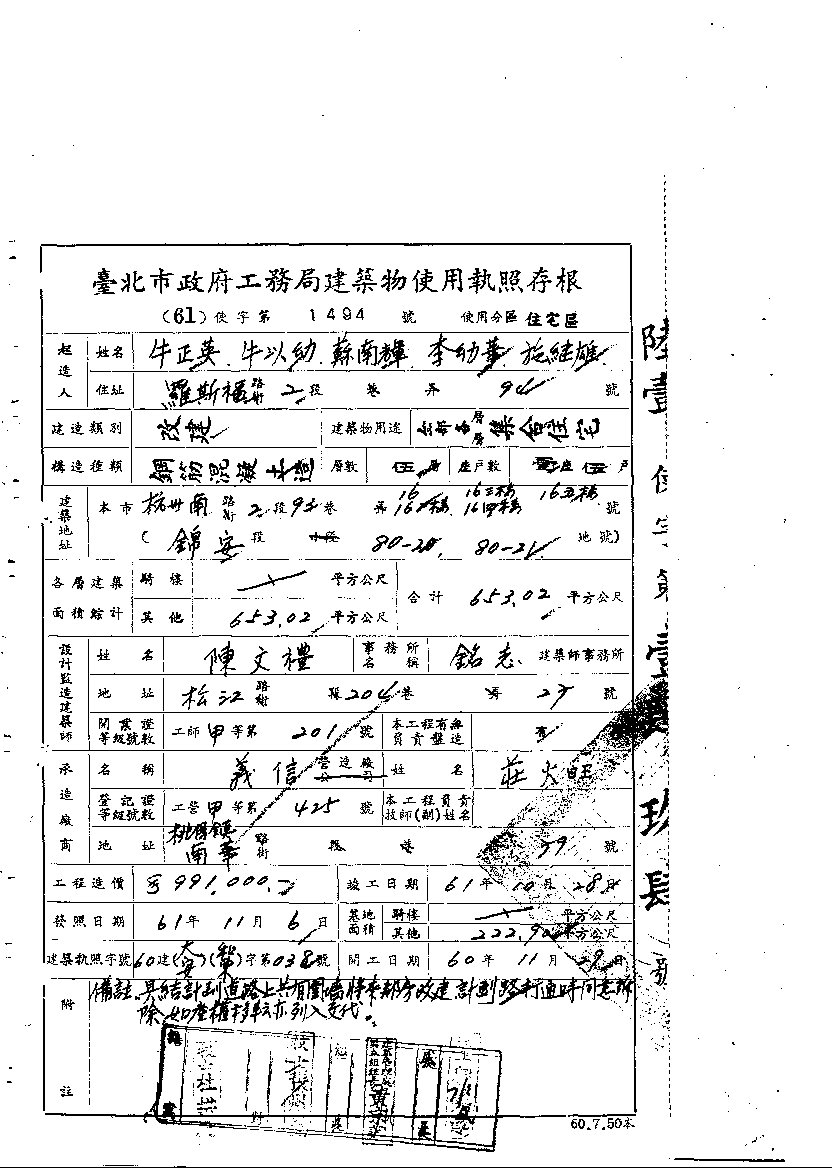 臺北市政府工務局建築物使用執照存根
(61)使字第 1494 號 使用分區 住宅區
起造人 姓名 牛正英 牛以幼 蘇南輝 李幼華 施繼雄
住址 羅斯福路 2段 巷 弄 94 號
建造類別 改建 建築物用途 全部各層集合住宅
構造種類 鋼筋混凝土造 層數 伍層 座戶數 座伍戶
建築地址 本市 杭州南路街 2段93巷 弄 16 16二樓 16三樓 16四樓 16五樓 號
(錦安段 小段 80-20, 80-21 地號)
各層建築面積綜計 騎樓 平方公尺 合計 653.02 平方公尺
其他 653.02 平方公尺
設計監造建築師 姓名 陳文禮 事務所名稱 銘志 建築師事務所
地址 松江路街 204巷 弄 27 號
開業證等級號數 工師甲等第 201 號 本工程有無負責監造 有
承造廠商 名稱 義信 營造廠公司 姓名 莊火旺
登記證等級號數 工營甲等第 425 號 本工程負責技師(副)姓名
地址 桃園鎮南華路街 段 巷 39 號
工程造價 991,000.- 竣工日期 61年10月28日
發照日期 61年11月6日 基地面積 騎樓 平方公尺
其他 222.90 平方公尺
建築執照字號 60建(大安)字第038號 開工日期 60年11月29日
附註 備註:具結計劃道路上共有圍牆將來部分改建計劃路打通時同意拆
除,如產權移轉亦列入交代。
60.7.50本
陸壹 使字第壹肆玖肆號